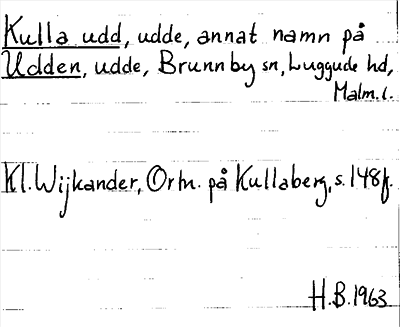 Kulla udd, udde, annat namn på
Udden, udde, Brunnby sn, Luggude hd,
Malm.l.
Kl. Wijkander, Ortn. på Kullaberg, s. 148f.
H.B. 1963